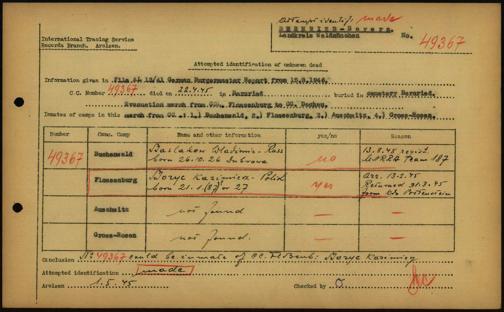 International Tracing Service
Records Branch. Arolsen.
Attempt identif. made
Landkreis Waldmünchen
No. 49367
Attempted identification of unknown dead
Information given in File 12/41 German Burgermeister Report from
C.C. Number 49367 died on 22.4.45 in buried in cemetery
Evacuation march from CC. Flossenburg to CC. Dachau.
Inmates of camps in this march from CC.: 1.) Buchenwald, 2.) Flossenburg, 3.) Auschwitz, 4.) Gross-Rosen.
Number Conc. Camp Name and other information yes/no Reason
49367 Buchenwald Bastakow Wladimir - Russ born 26.12.26 Dubrowa no 13.8.45 regist. UNRRA Team 187
Flossenburg Borye Kazimierz - Polish born 21.1.(87) or 27 yes Arr. 13.2.45 Returned 31.3.45 from Cdo
Auschwitz not found — —
Gross-Rosen not found. — —
Conclusion No 49367 could be inmate of CC. Flossenb: Borye Kazimierz
Attempted identification made
Arolsen 1.5.45 Checked by